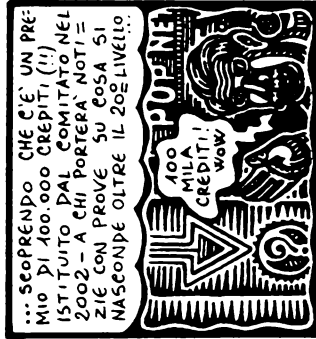 ...SCOPRENDO CHE C'E' UN PRE=
MIO DI 100.000 CREDITI (!!)
ISTITUITO DAL COMITATO NEL
2002 - A CHI PORTERA' NOTI=
ZIE CON PROVE SU COSA SI
NASCONDE OLTRE IL 20º LIVELLO...
100
MILA
CREDITI!
WOW
?